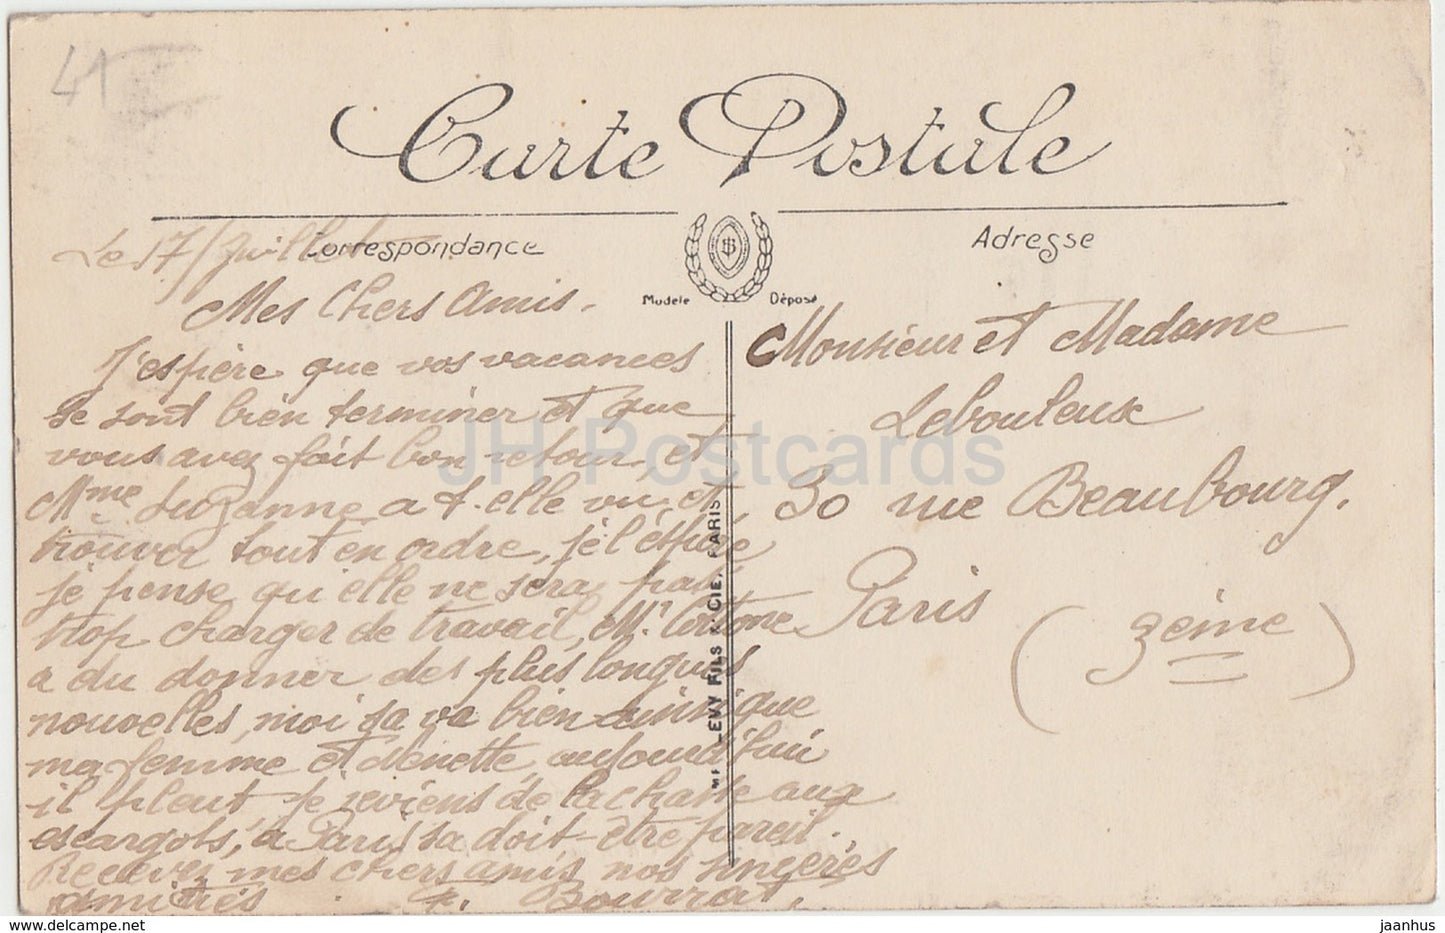 41
Carte Postale
Correspondance
Adresse
Modele Déposé
Le 17/Juillet
Mes Chers Amis.
J'espère que vos vacances
se sont bien terminer et que
vous avez fait bon retour, et
Mme Suzanne a t-elle vu, et
trouver tout en ordre, je l'espère
je pense qu'elle ne sera pas
trop charger de travail, Mr
a du donner des plus longues
nouvelles, moi sa va bien ainsi que
ma femme et denette, aujourd'hui
il pleut, je reviens de la chasse aux
escargots, à Paris sa doit-être pareil.
Recevez mes chers amis nos sincères
amitiés F. Bourrat,
Monsieur et Madame
Lebouleux
30 rue Beaubourg.
Paris
(3ème)
LEVY FILS & CIE. PARIS
JH Postcards
delcampe.net
jaanhus